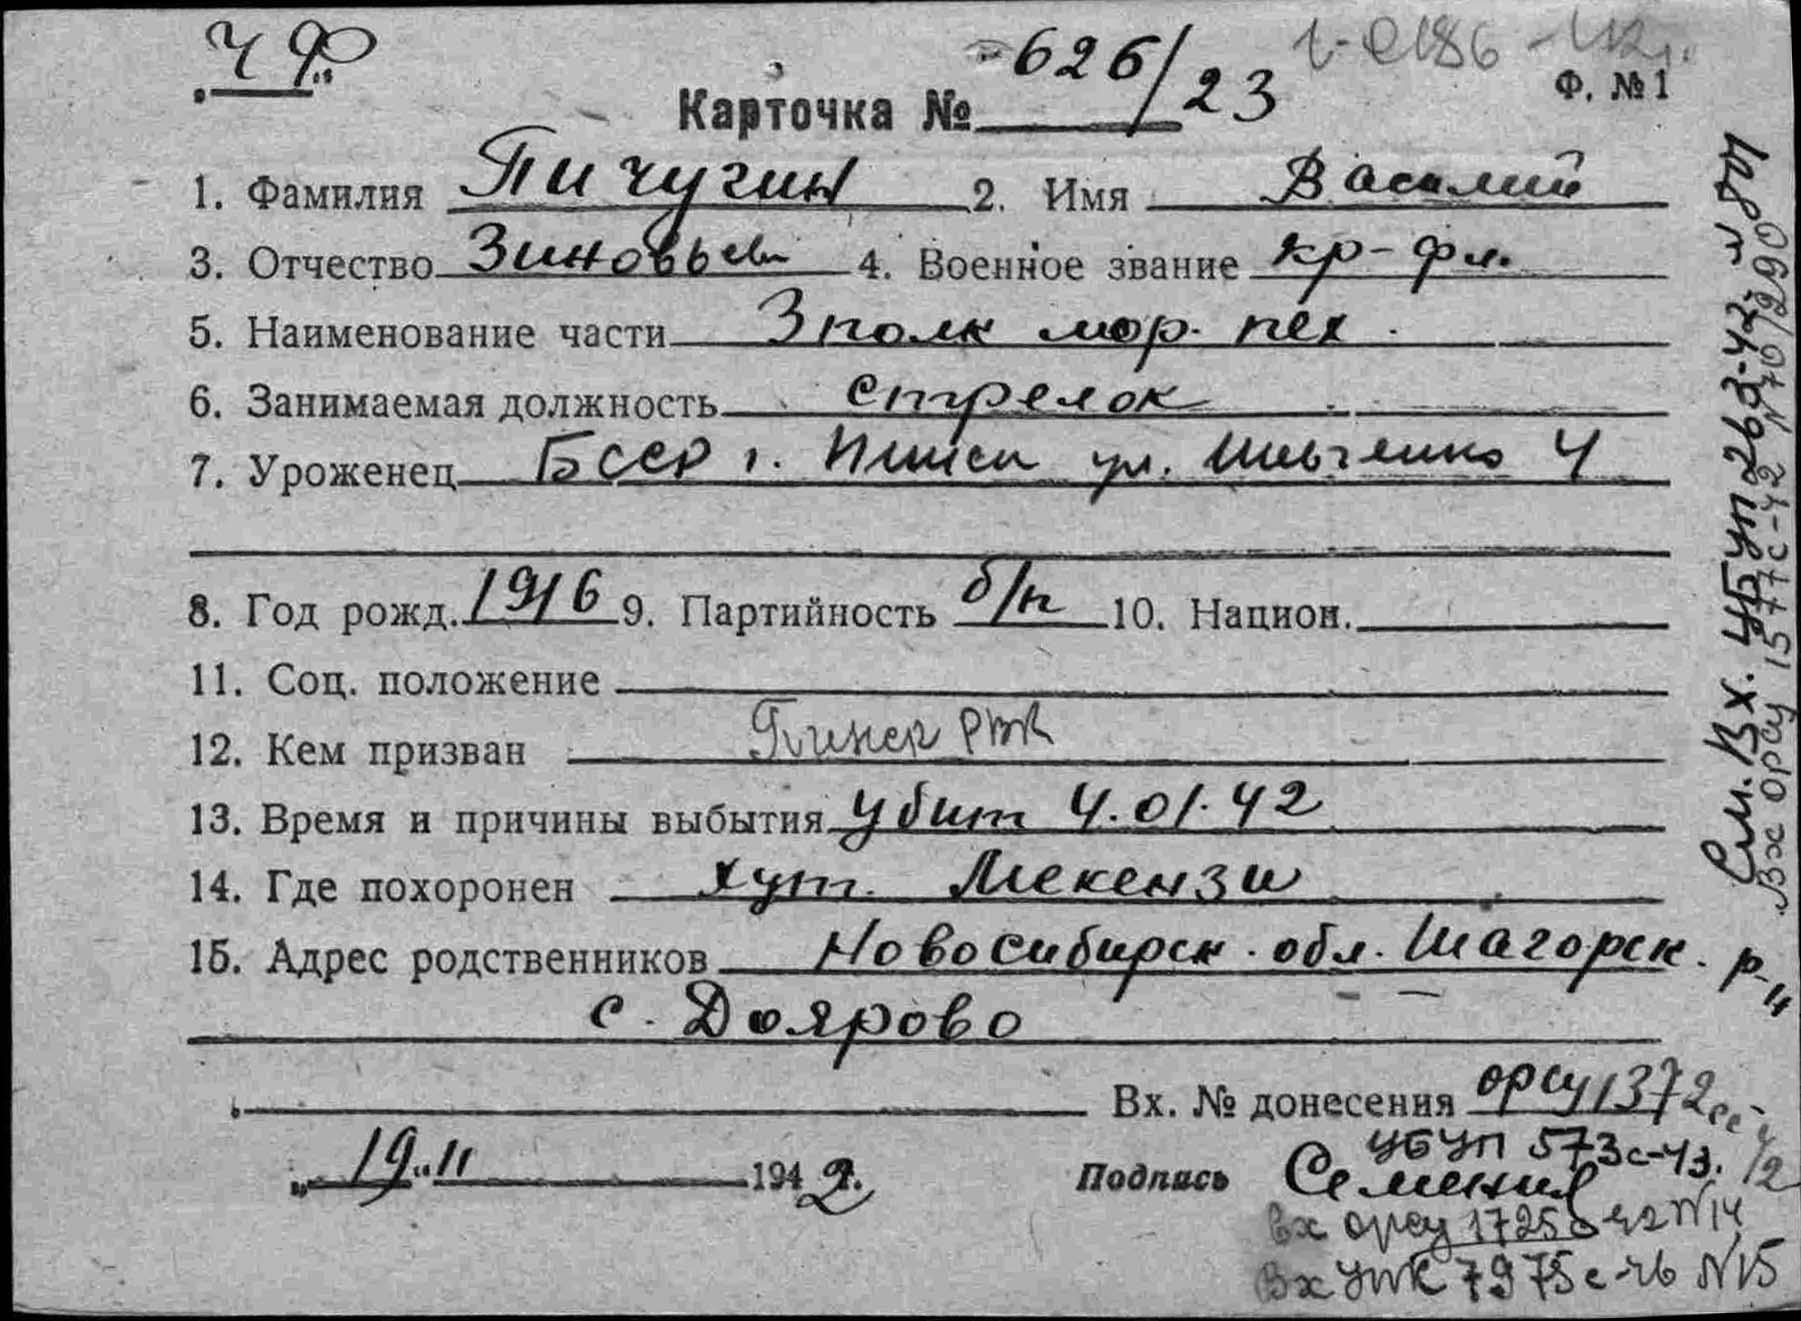 ЧФ
Карточка № 626/23
Ф. №1
1. Фамилия Пичугин 2. Имя Василий
3. Отчество Зиновьев 4. Военное звание кр-фл.
5. Наименование части 3 полк мор. пех.
6. Занимаемая должность стрелок
7. Уроженец БССР г. Пинск ул. Шевченко 4
8. Год рожд. 1916 9. Партийность б/п 10. Национ.
11. Соц. положение
12. Кем призван Пинск РВК
13. Время и причины выбытия убит 4.01.42
14. Где похоронен хут. Мекензи
15. Адрес родственников Новосибирск. обл. Шагорск. р-н
с. Доярово
Вх. № донесения орсу 1372с
УБУП 573с-43.
„19„ 11 1942г. Подпись
вх орсу 1725с 42 №14
Вх УПК 7975с-46 №15
См. Вх. УБУП 263-43
Вх орсу 1577с-42